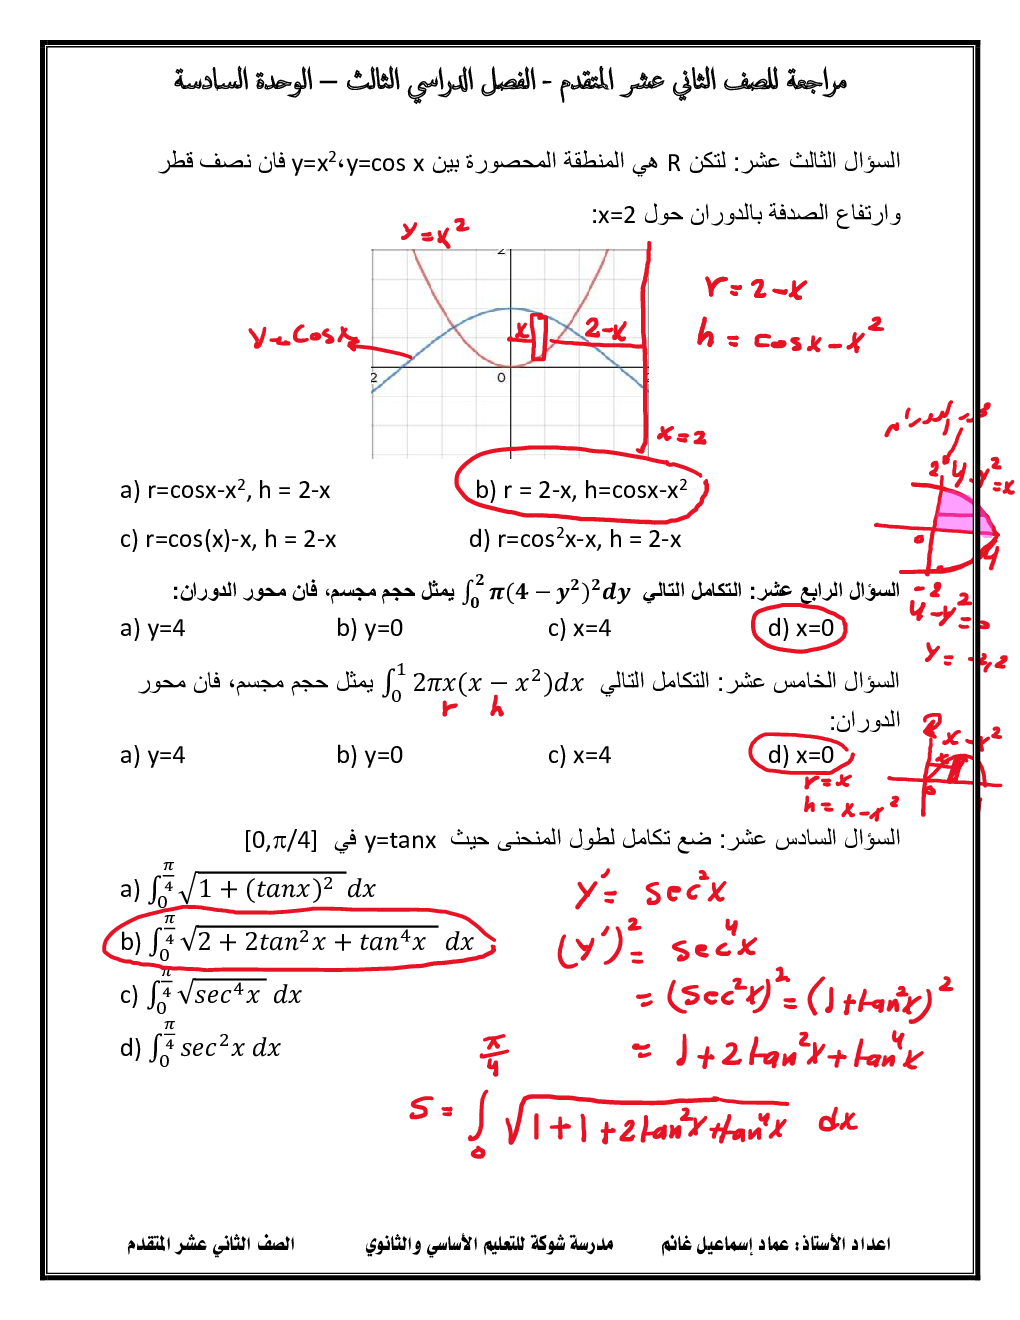 مراجعة للصف الثاني عشر المتقدم - الفصل الدراسي الثالث – الوحدة السادسة
السؤال الثالث عشر: لتكن R هي المنطقة المحصورة بين y=x²،y=cos x فان نصف قطر
وارتفاع الصدفة بالدوران حول x=2:
y=x²
2
y=cosx
x
2-x
2
0
x=2
r=2-x
h=cosx-x²
a) r=cosx-x², h = 2-x
b) r = 2-x, h=cosx-x²
c) r=cos(x)-x, h = 2-x
d) r=cos²x-x, h = 2-x
2
4-y²=x
0
4
-2
السؤال الرابع عشر: التكامل التالي ∫₀² π(4 − y²)²dy يمثل حجم مجسم، فان محور الدوران:
4-y²=0
y=-2,2
a) y=4
b) y=0
c) x=4
d) x=0
السؤال الخامس عشر: التكامل التالي ∫₀¹ 2πx(x − x²)dx يمثل حجم مجسم، فان محور
r
h
الدوران:
x-x²
x
0
a) y=4
b) y=0
c) x=4
d) x=0
r=x
h=x-x²
السؤال السادس عشر: ضع تكامل لطول المنحنى حيث y=tanx في [0,π/4]
a) ∫₀^(π/4) √(1 + (tanx)²) dx
b) ∫₀^(π/4) √(2 + 2tan²x + tan⁴x) dx
c) ∫₀^(π/4) √(sec⁴x) dx
d) ∫₀^(π/4) sec²x dx
y'= sec²x
(y')²= sec⁴x
= (sec²x)²=(1+tan²x)²
= 1+2tan²x+tan⁴x
S = ∫₀^(π/4) √(1+1+2tan²x+tan⁴x) dx
اعداد الأستاذ: عماد إسماعيل غانم
مدرسة شوكة للتعليم الأساسي والثانوي
الصف الثاني عشر المتقدم